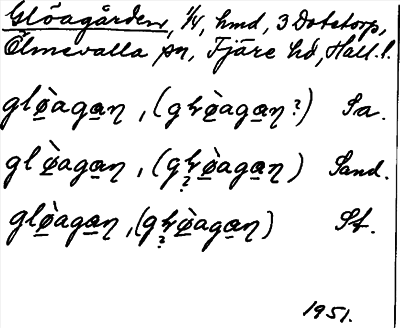 Glöagården, 1/4, hmd, 3 Dotetorp,
Ölmevalla sn, Fjäre hd, Hall. l.
glø̀agaɳ, (gɽø̀agaɳ?) Sa.
glø̀agaɳ, (gɽø̀agaɳ) Sand.
?
glø̀agaɳ, (gɽø̀agaɳ) St.
?
1951.